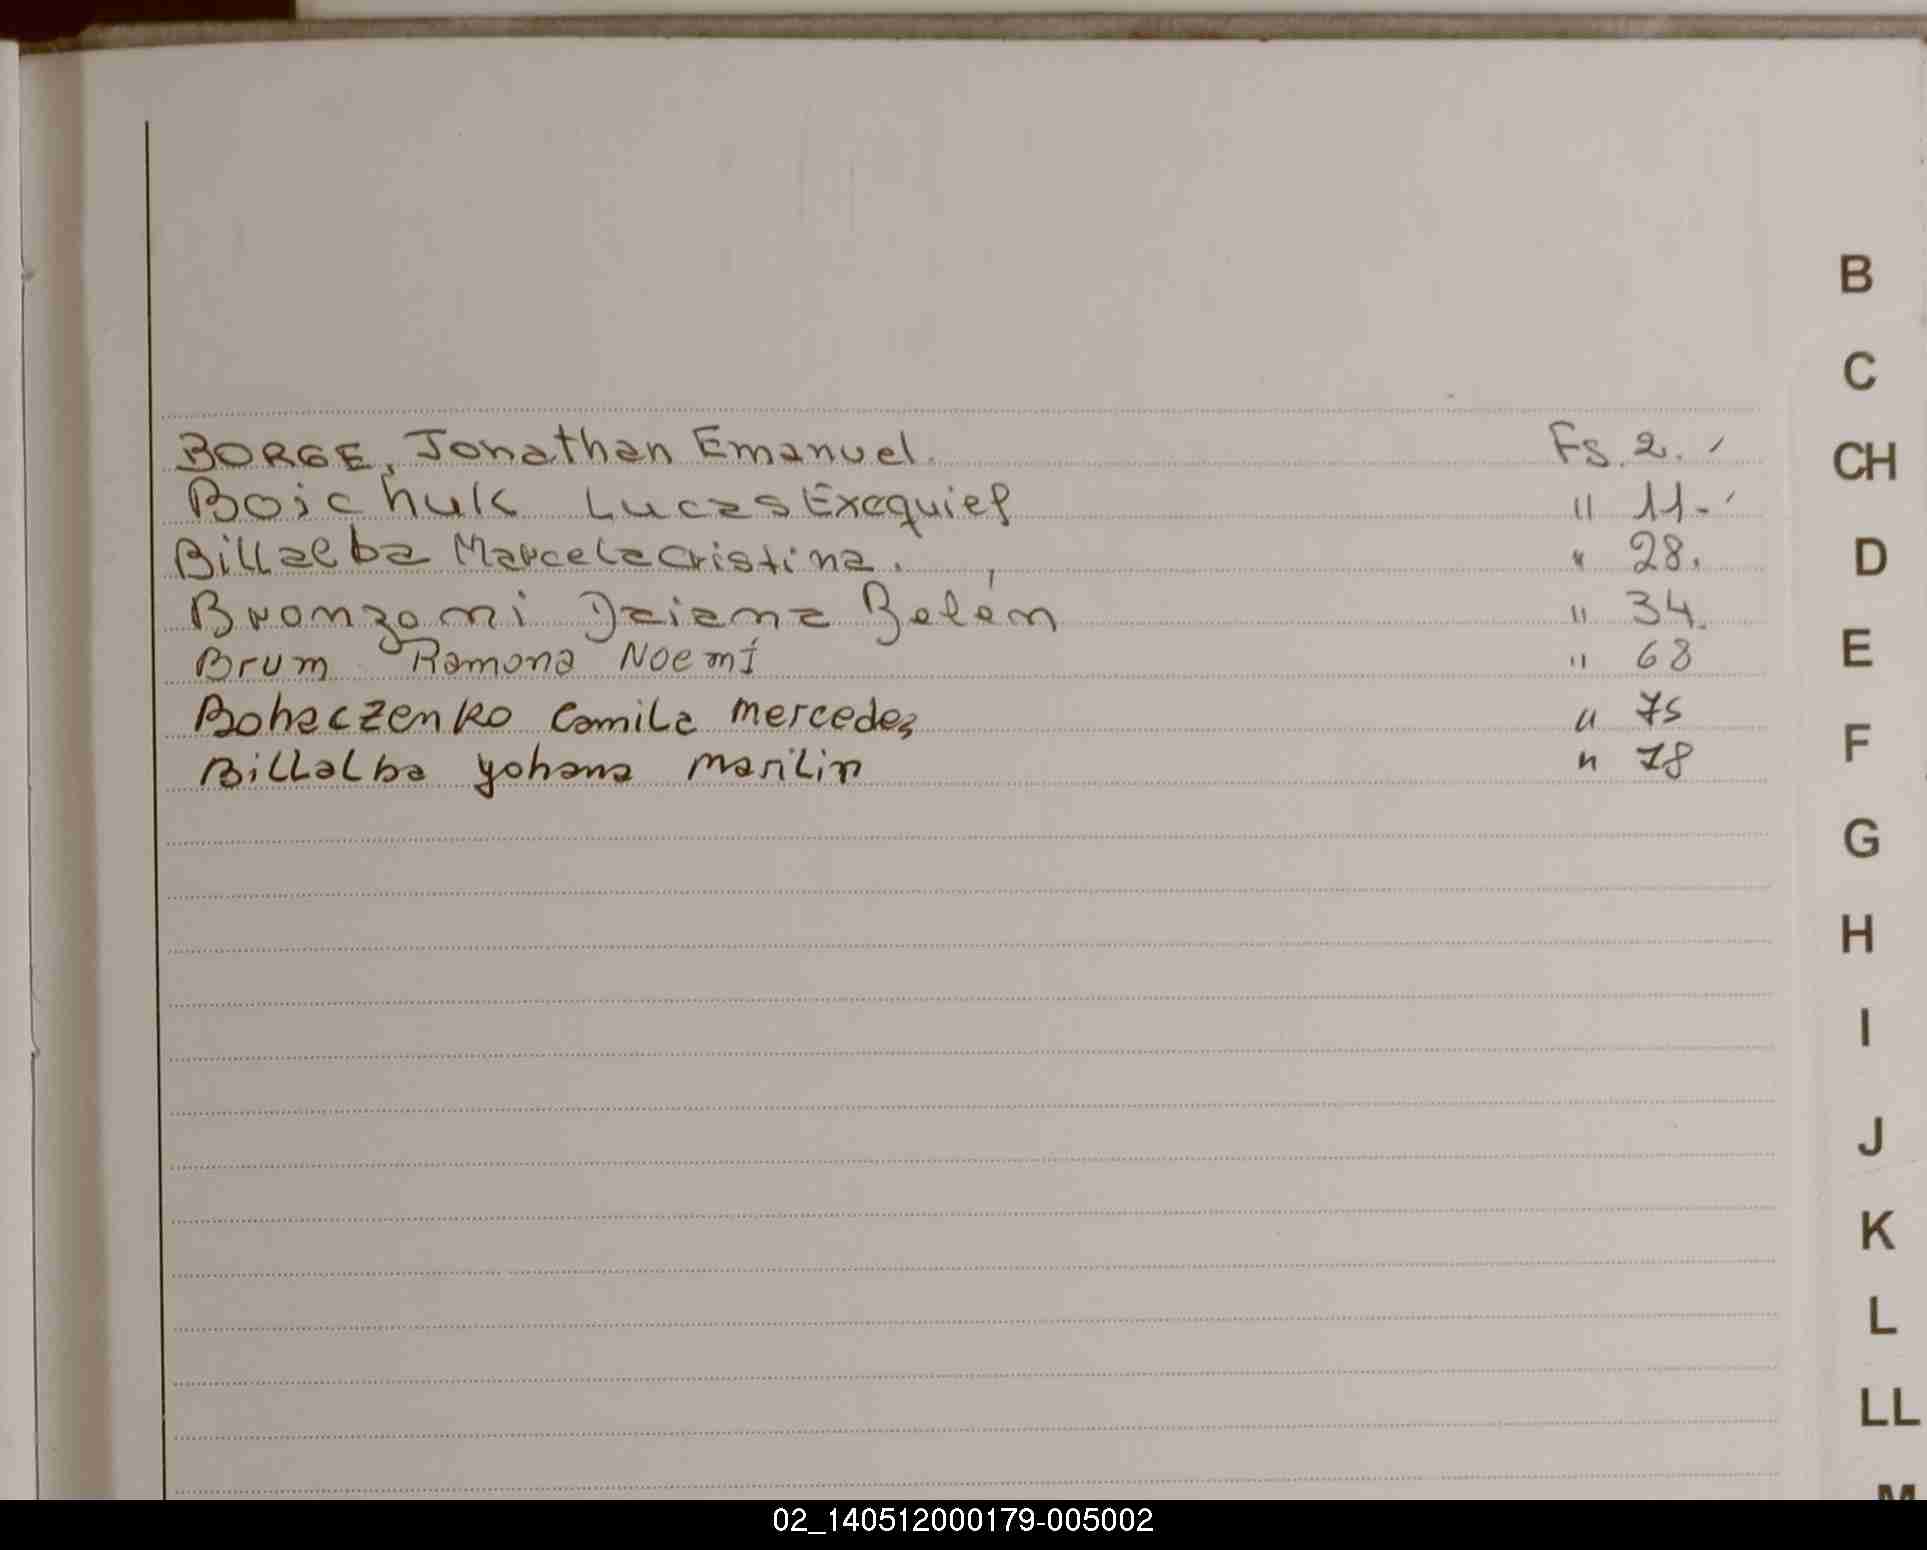 B
C
BORGE, Jonathan Emanuel. Fs. 2.
CH
Boichuk Lucas Exequiel " 11.
Billalba Marcela Cristina. " 28.
D
Bronzoni Daiana Belén " 34.
Brum Ramona Noemí " 68
E
Bohaczenko Camila Mercedes " 75
F
Billalba yohana marilin " 78
G
H
I
J
K
L
LL
M
02_140512000179-005002